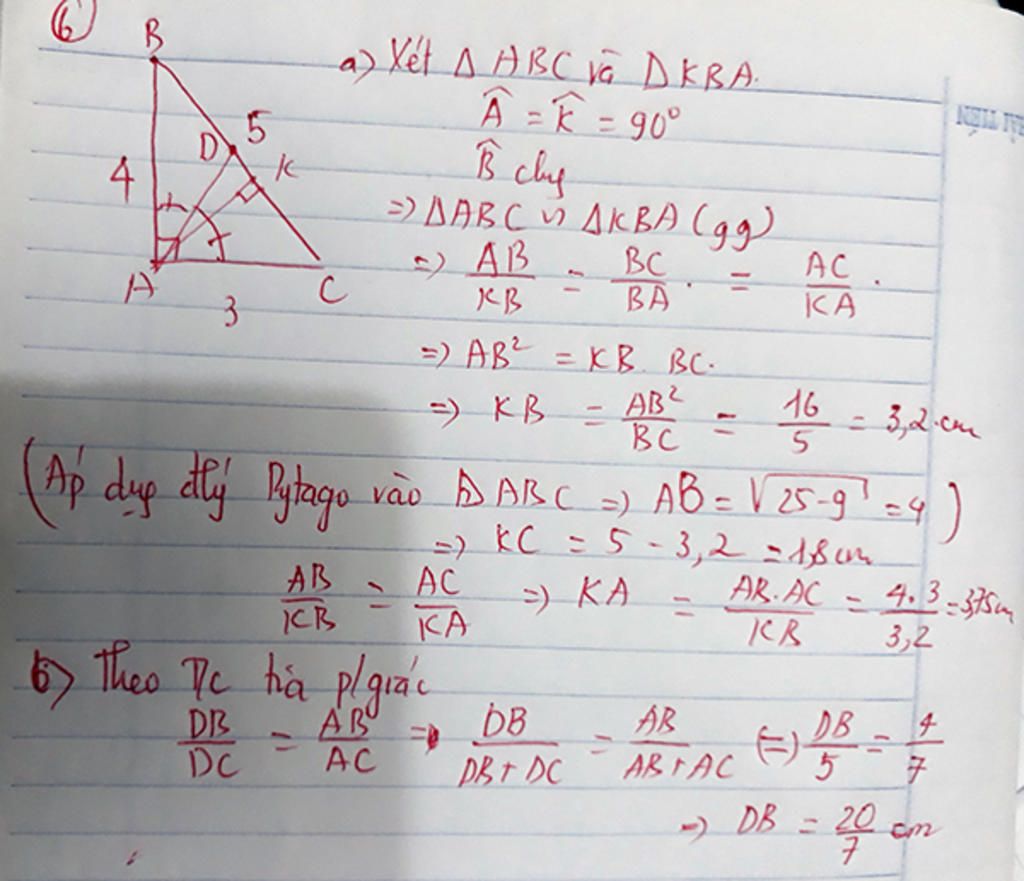 6
B
D
5
K
4
A
3
C
a) Xét Δ ABC và Δ KBA.
Â = K̂ = 90°
B̂ chg
=> ΔABC ∽ ΔKBA (gg)
=> AB/KB = BC/BA = AC/KA.
=> AB² = KB. BC.
=> KB = AB²/BC = 16/5 = 3,2 cm
(Áp dụg đlý Pytago vào Δ ABC => AB = √25-9 = 4)
=> KC = 5 - 3,2 = 1,8 cm
AB/KB = AC/KA => KA = AB.AC/KB = 4.3/3,2 = 3,75cm
b) Theo T/c p/giác
DB/DC = AB/AC => DB/DB+DC = AB/AB+AC (=) DB/5 = 4/7
=> DB = 20/7 cm